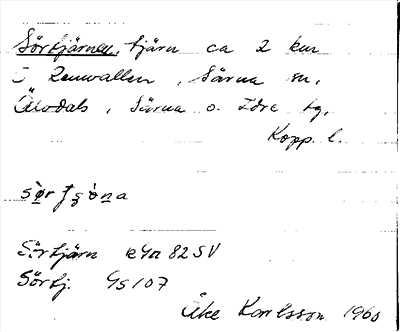 Sörtjärnen, tjärn ca 2 km
S Renvallen, Särna sn,
Älvdals, Särna o. Idre tg,
Kopp. l.
Sörtjärn ek 4a 82 SV
Sörtj. Gs 107
Åke Karlsson 1960